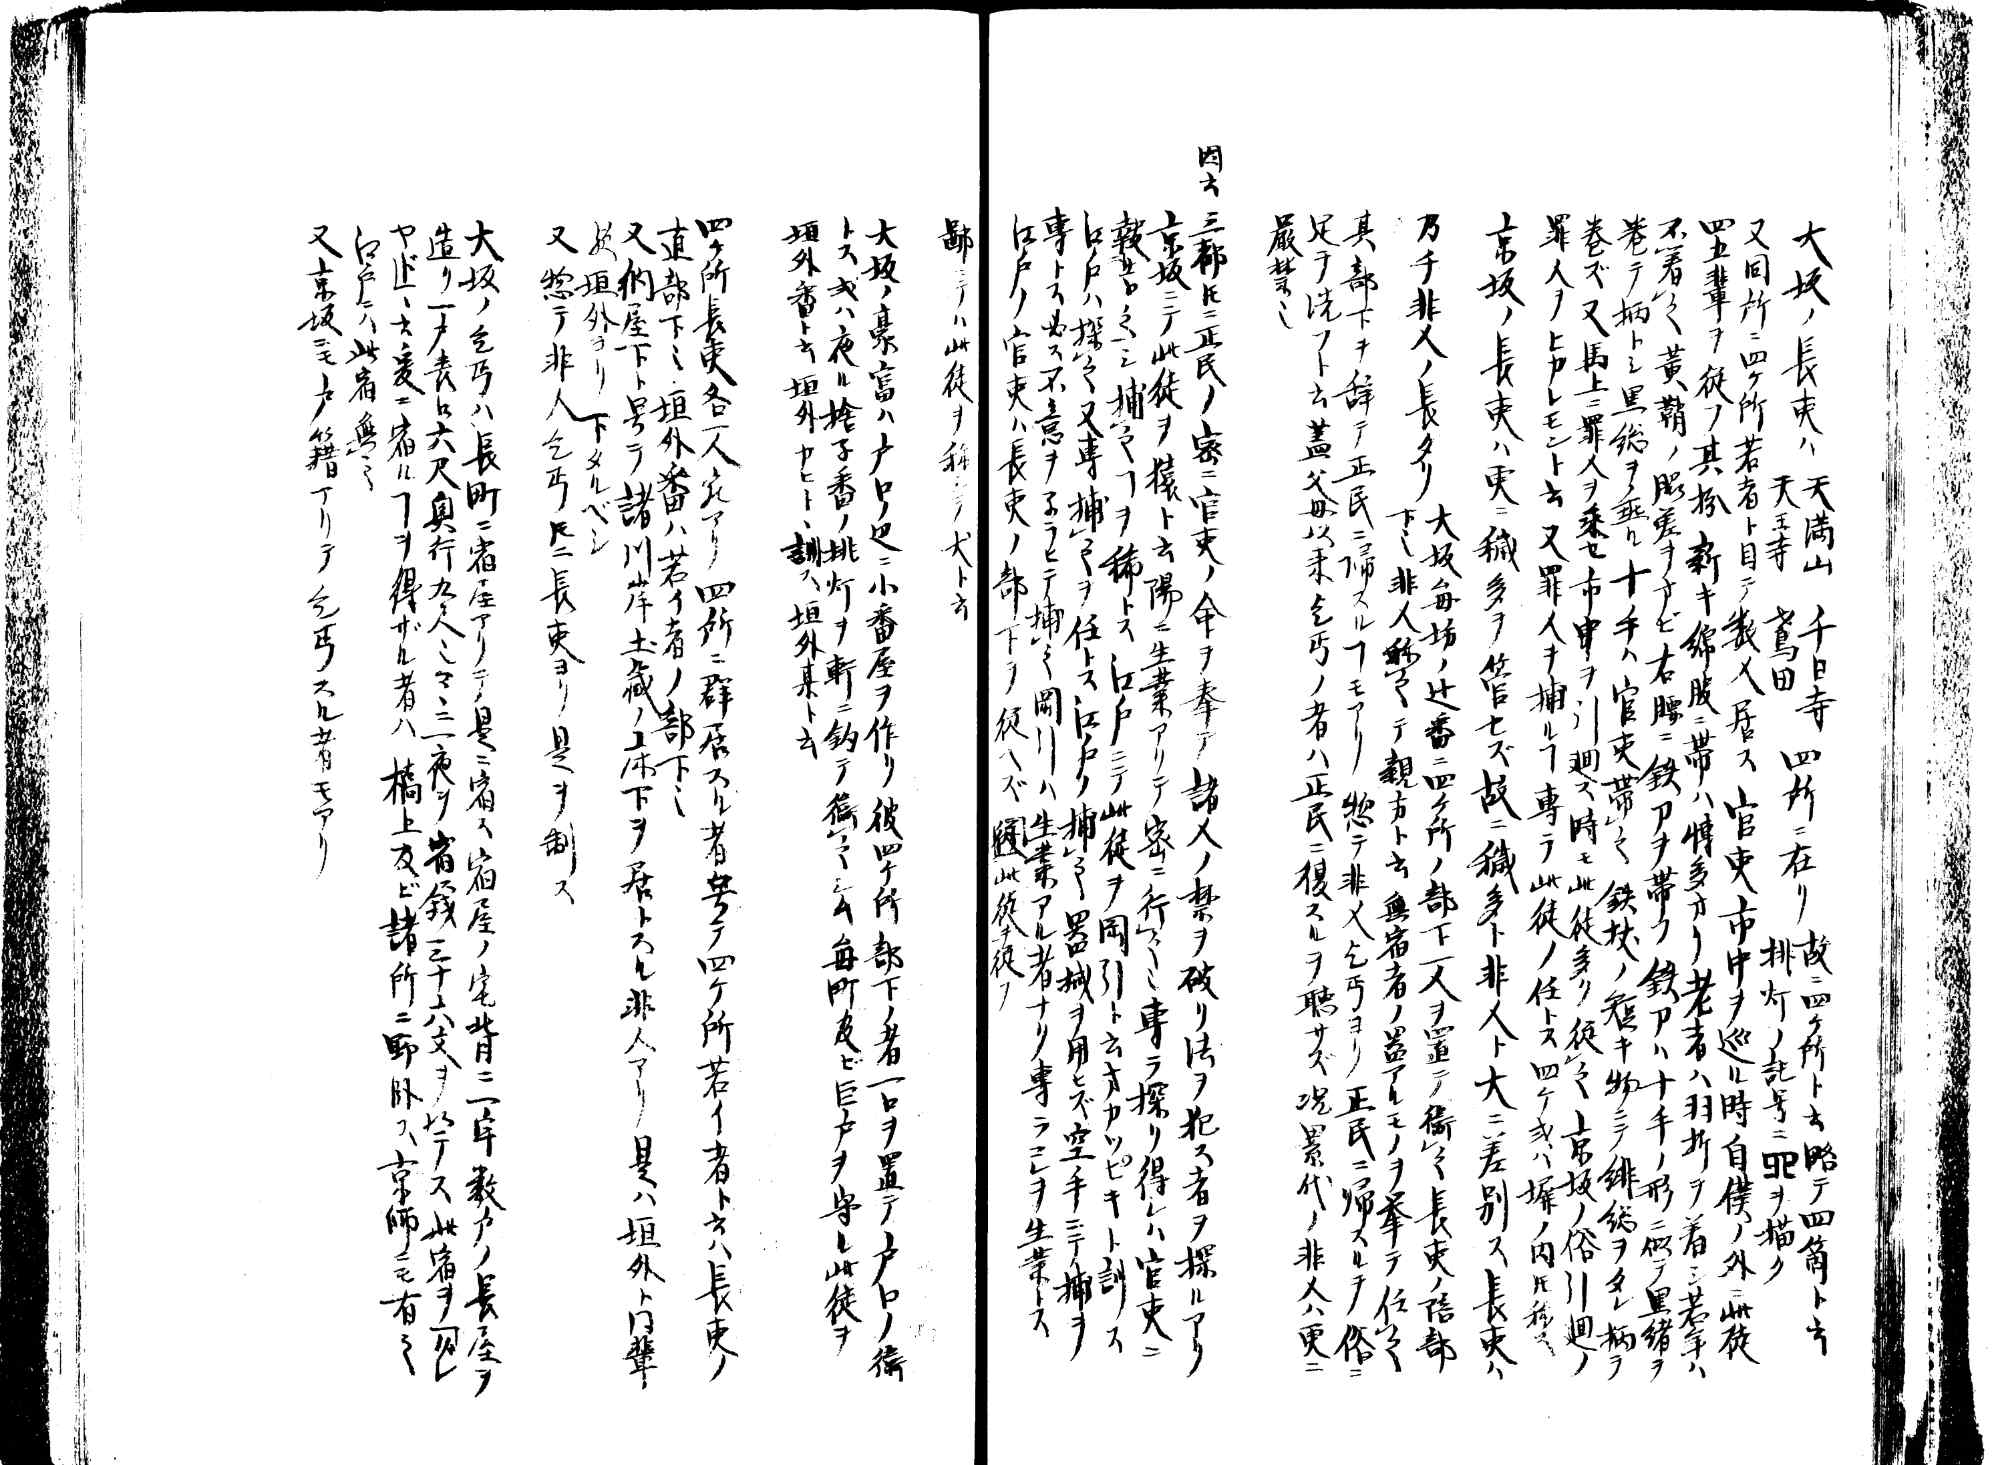 大坂ノ長吏ハ 天満山 千日寺 天王寺 鳶田 四所ニ在リ故ニ四ケ所ト云略テ四箇ト云
挑灯ノ記号ニ ヲ描ク
又同所ニ四ケ所若者ト目テ数人居ス官吏市中ヲ巡ル時自僕ノ外ニ此徒
四五輩ヲ従フ其扮新キ綿服ニ帯ハ博多オリ老者ハ羽折ヲ着シ若年ハ
不着之黄鞘ノ脇差ヲオビ右腰ニ鉄刀ヲ帯フ鉄刀ハ十手ノ形ニ似テ黒緒ヲ
巻テ柄トシ黒総ヲ垂ル十手ハ官吏帯之鉄杖ノ短キ物ニテ緋総ヲタレ柄ヲ
巻ズ又馬上ニ罪人ヲ乗セ市中ヲ引廻ス時モ此徒多ク従之京坂ノ俗引廻ノ
罪人ヲヒカレモント云又罪人ヲ捕ルヿ専ラ此徒ノ任トス四ケ或ハ塀ノ内トモ称ス
京坂ノ長吏ハ更ニ穢多ヲ管セズ故ニ穢多ト非人ト大ニ差別ス長吏ハ
乃チ非人ノ長タリ
大坂毎坊ノ辻番ニ四ケ所ノ部下一人ヲ置テ衛之長吏ノ陪部
下也非人称之テ親方ト云無宿者ノ器アルモノヲ挙テ任之
其部下ヲ辞テ正民ニ帰スルヿモアリ惣テ非人乞丐ヨリ正民ニ帰スルヲ俗ニ
足ヲ洗フト云蓋父母以来乞丐ノ者ハ正民ニ復スルヲ聴サズ況累代ノ非人ハ更ニ
厳禁也
因云三都トモニ正民ノ密ニ官吏ノ命ヲ奉テ諸人ノ禁ヲ破リ法ヲ犯ス者ヲ探ルアリ
京坂ニテ此徒ヲ猿ト云陽ニ生業アリテ密ニ行之也専ラ探リ得レハ官吏ニ
報告之シ捕之ヿヲ稀トス江戸ニテ此徒ヲ岡引ト云オカツピキト訓ス
江戸ハ探之又専捕之ヲ任トス江戸ノ捕之器械ヲ用ヒズ空手ニテ捕ヲ
専トス必ス不意ヲネラヒテ捕之岡引ハ生業アル者ナク専ラコレヲ生業トス
江戸ノ官吏ハ長吏ノ部下ヲ従ヘズ 此徒ヲ従フ
鄙ニテハ此徒ヲ称シテ犬ト云
大坂ノ豪富ハ戸口ノ辺ニ小番屋ヲ作リ彼四ケ所部下ノ者一口ヲ置テ戸口ノ衛
トス或ハ夜ル捨子番ノ挑灯ヲ軒ニ釣テ衛之也云毎町及ビ巨戸ヲ守ル此徒ヲ
垣外番ト云垣外カヒトト訓ス垣外某ト云
四ケ所長吏各一人宛アリ四所ニ群居スル者号テ四ケ所若イ者ト云ハ長吏ノ
直部下也垣外番ハ若イ者ノ部下也
又納屋下ト号テ諸川岸土蔵ノ床下ヲ居トスル非人アリ是ハ垣外ト同輩
垣外ヨリ下タルベシ
又惣テ非人乞丐トモニ長吏ヨリ是ヲ制ス
大坂ノ乞丐ハ長町ニ宿屋アリテ是ニ宿ス宿屋ノ宅背ニ一宇数戸ノ長屋ヲ
造リ一戸表口六尺奥行九尺也 一夜ヲ宿銭三十六文ヲ以テス此宿ヲ
ヤドト云爰ニ宿ルヿヲ得ザル者ハ橋上及ビ諸所ニ野臥ス京師ニモ有之
江戸ニハ此宿無之
又京坂ニモ戸籍アリテ乞丐スル者モアリ